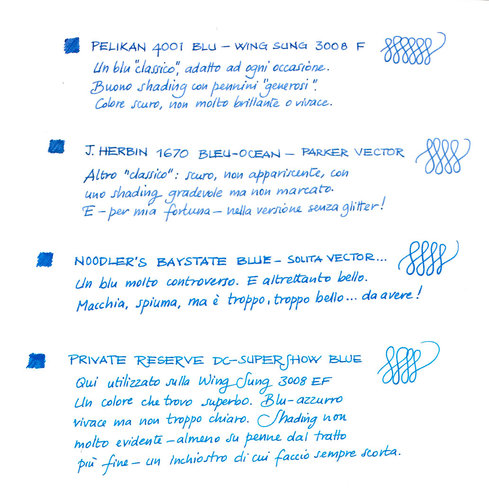 PELIKAN 4001 BLU – WING SUNG 3008 F
Un blu "classico", adatto ad ogni occasione.
Buono shading con pennini "generosi".
Colore scuro, non molto brillante o vivace.
J. HERBIN 1670 BLEU-OCEAN – PARKER VECTOR
Altro "classico": scuro, non appariscente, con
uno shading gradevole ma non marcato.
E – per mia fortuna – nella versione senza glitter!
NOODLER'S BAYSTATE BLUE – SOLITA VECTOR...
Un blu molto controverso. E altrettanto bello.
Macchia, spiuma, ma è troppo, troppo bello... da avere!
PRIVATE RESERVE DC-SUPERSHOW BLUE
Qui utilizzato sulla Wing Sung 3008 EF
Un colore che trovo superbo. Blu-azzurro
vivace ma non troppo chiaro. Shading non
molto evidente – almeno su penne dal tratto
più fine – un inchiostro di cui faccio sempre scorta.